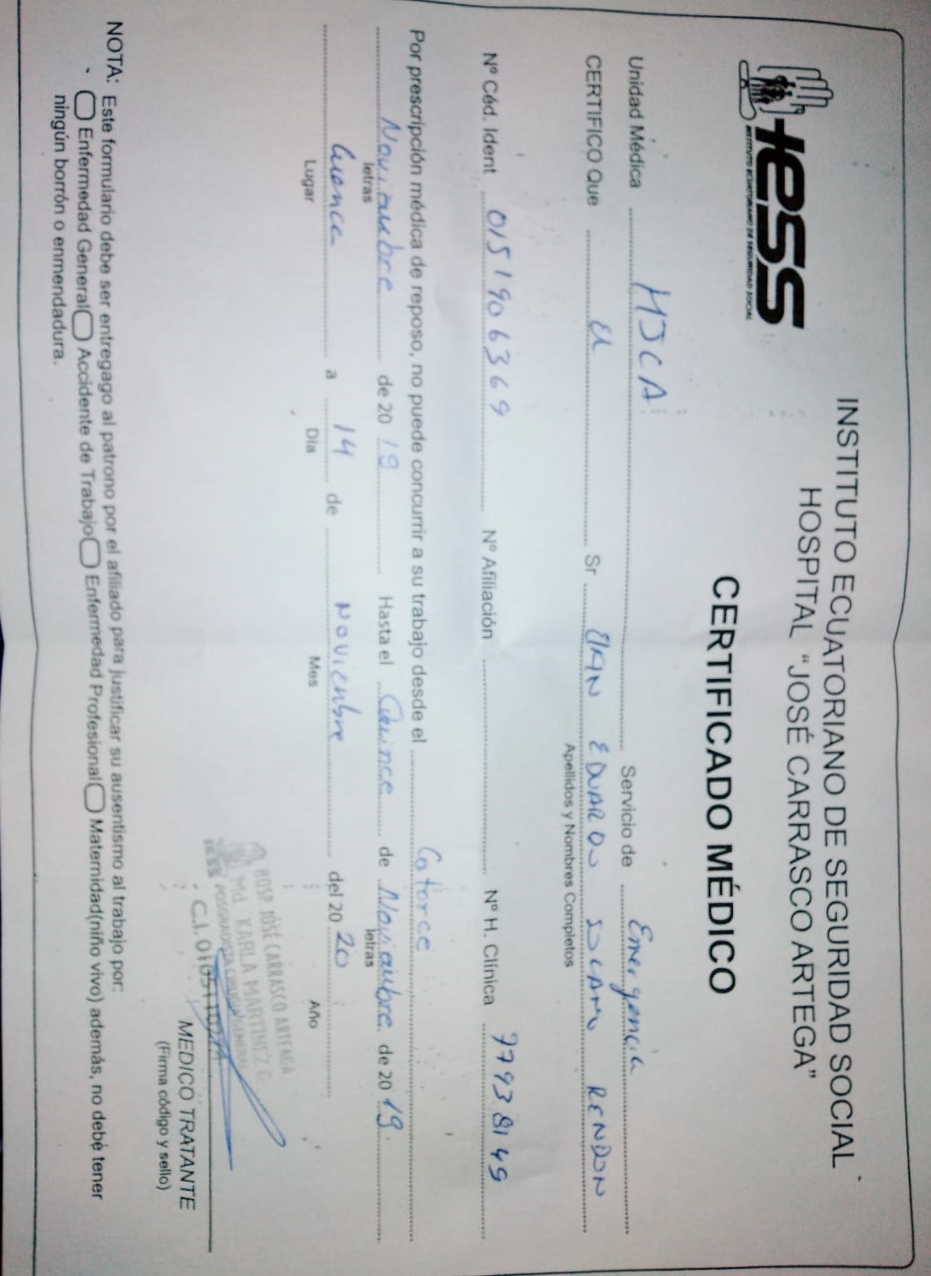 iess
INSTITUTO ECUATORIANO DE SEGURIDAD SOCIAL
INSTITUTO ECUATORIANO DE SEGURIDAD SOCIAL
HOSPITAL “JOSÉ CARRASCO ARTEGA”
CERTIFICADO MÉDICO
Unidad Médica HJCA Servicio de Emergencia
CERTIFICO Que El Sr EDUARDO RENDON
Apellidos y Nombres Completos
Nº Céd. Ident 0151906369 Nº Afiliación Nº H. Clínica 77938149
Por prescripción médica de reposo, no puede concurrir a su trabajo desde el Catorce
Noviembre de 2019 Hasta el Quince de Noviembre de 2019
letras letras
Cuenca a 14 de Noviembre del 2020
Lugar Día Mes Año
HOSP. JOSÉ CARRASCO ARTEAGA
Md. KARLA MARTINEZ
IESS
MEDICO TRATANTE
(Firma código y sello)
NOTA: Este formulario debe ser entregago al patrono por el afiliado para justificar su ausentismo al trabajo por:
Enfermedad General Accidente de Trabajo Enfermedad Profesional Maternidad(niño vivo) además, no debé tener
ningún borrón o enmendadura.